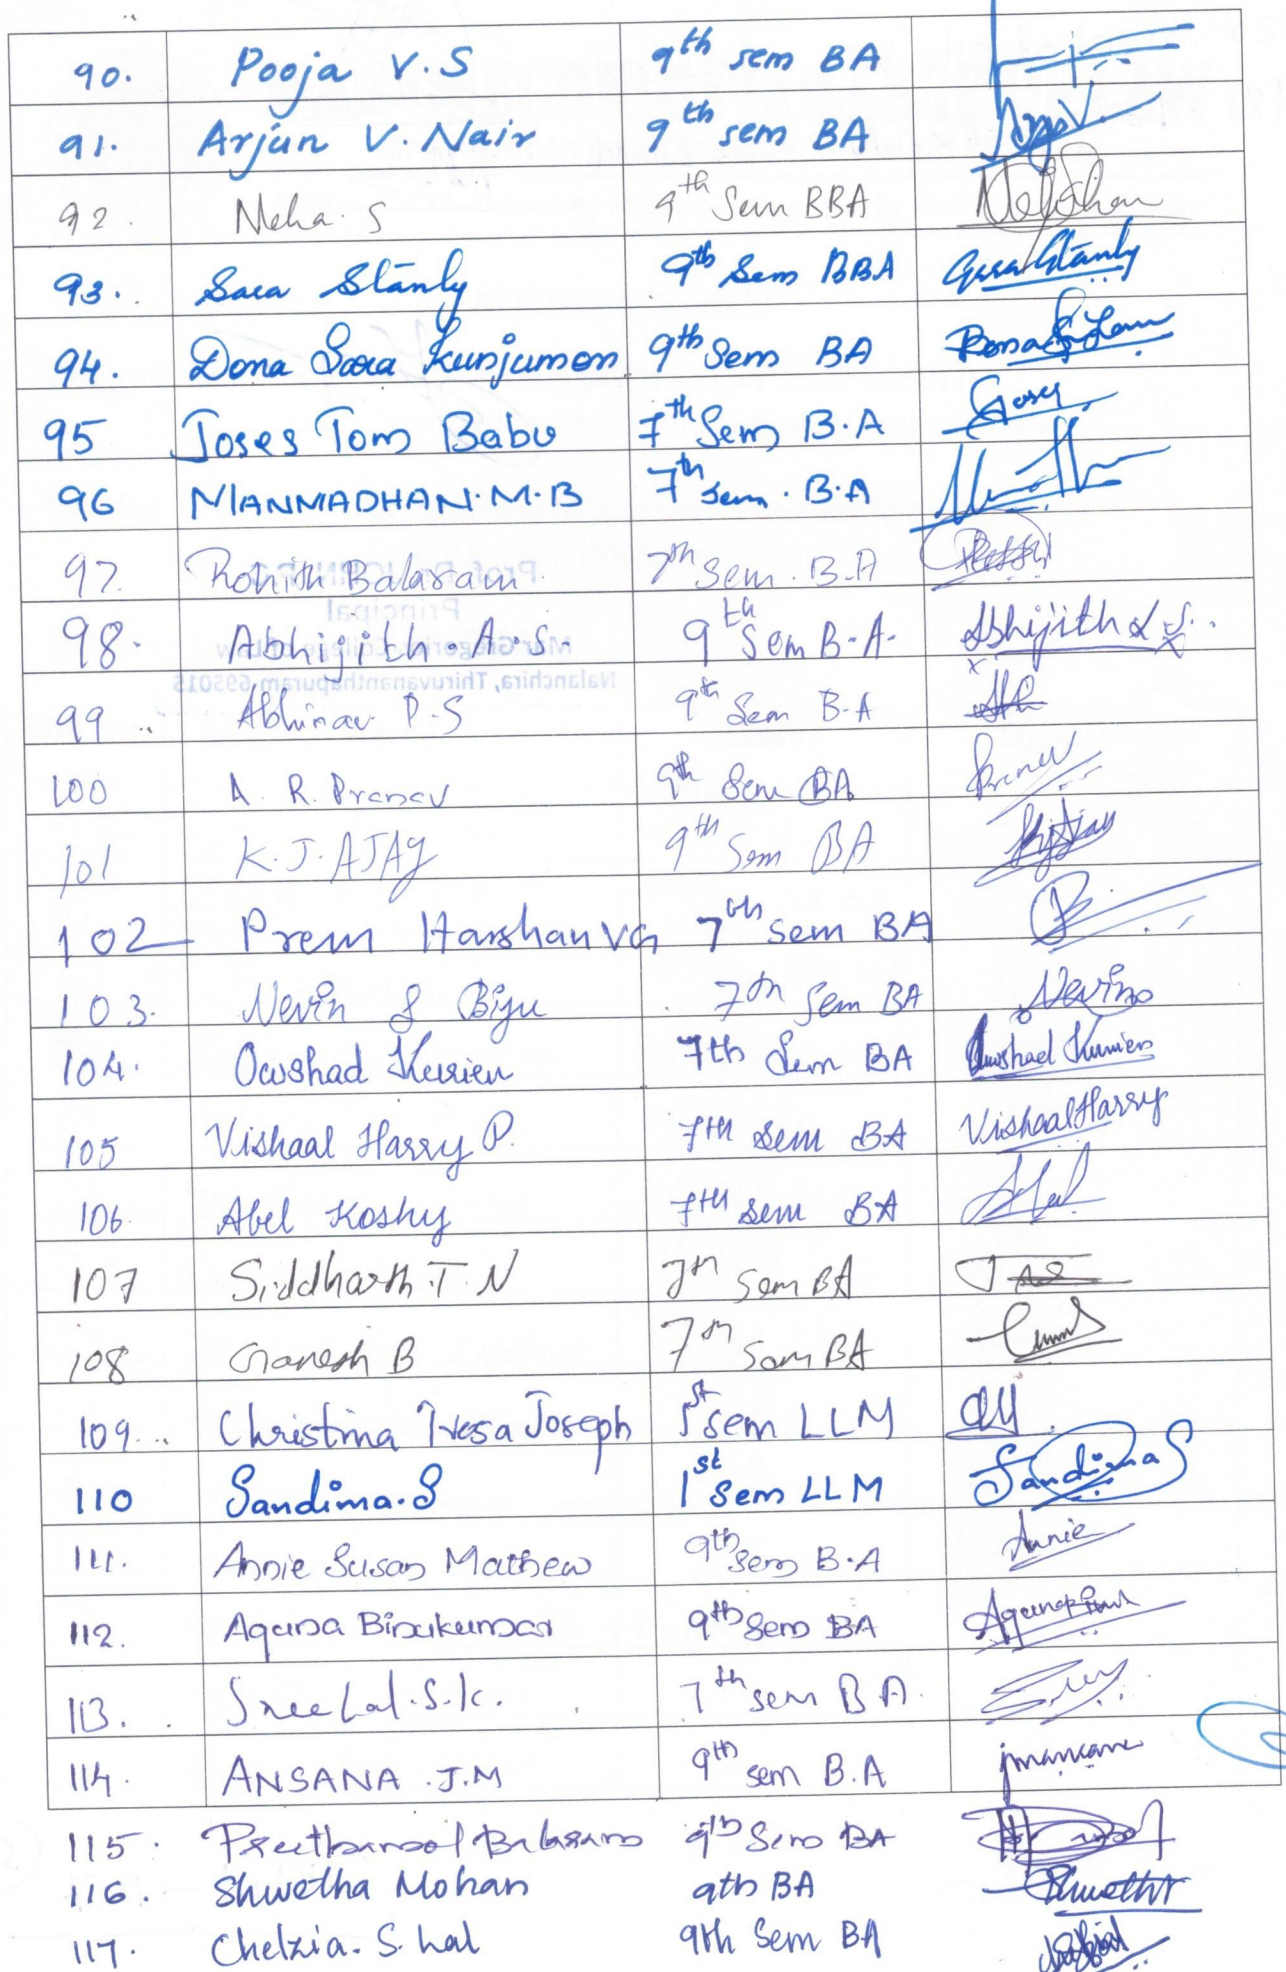 90. Pooja V.S 9th sem BA
91. Arjun V. Nair 9th sem BA Arjun V.
92. Neha. S 9th Sem BBA
93. Sara Stanly 9th Sem BBA Sara Stanly
94. Dona Sara Kunjumon 9th Sem BA
95 Joses Tom Babu 7th Sem B.A Joses
96 MANMADHAN.M.B 7th Sem. B.A
97. Rohith Balaram 7th Sem. B.A
98. Abhijith.A.S. 9th Sem B-A- Abhijith A.S.
99 Abhinav P.S 9th Sem B-A
100 A. R. Pranav 9th Sem BA Pranav
101 K.J.AJAy 9th Sem BA
102 Prem Harshan VG 7th sem BA
103. Nevin S Biju 7th Sem BA Nevin
104. Owshad Kurien 7th Sem BA Owshad Kurien
105 Vishaal Harry P. 7th sem BA Vishaal Harry
106 Abel Koshy 7th sem BA Abel
107 Siddharth.T.N 7th Sem BA
108 Ganesh B 7th Sem BA
109. Christina Tresa Joseph 1st Sem LLM
110 Sandima.S 1st Sem LLM Sandima S
111. Annie Susan Mathew 9th Sem B.A Annie
112. Aguna Binukumar 9th Sem BA
113. SreeLal.S.K. 7th sem B A.
114. ANSANA .J.M 9th sem B.A
115. 9th Sem BA
116. Shwetha Mohan 9th BA Shwetha
117. Chelzia. S. Lal 9th Sem BA
Prof. Dr. JOHN
Principal
Mar Gregorios College of Law
Nalanchira, Thiruvananthapuram 695015